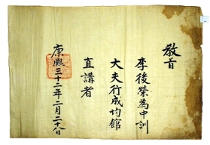 教旨
李後榮為中訓
大夫行成均館
直講者
康熙三十二年二月二十八日